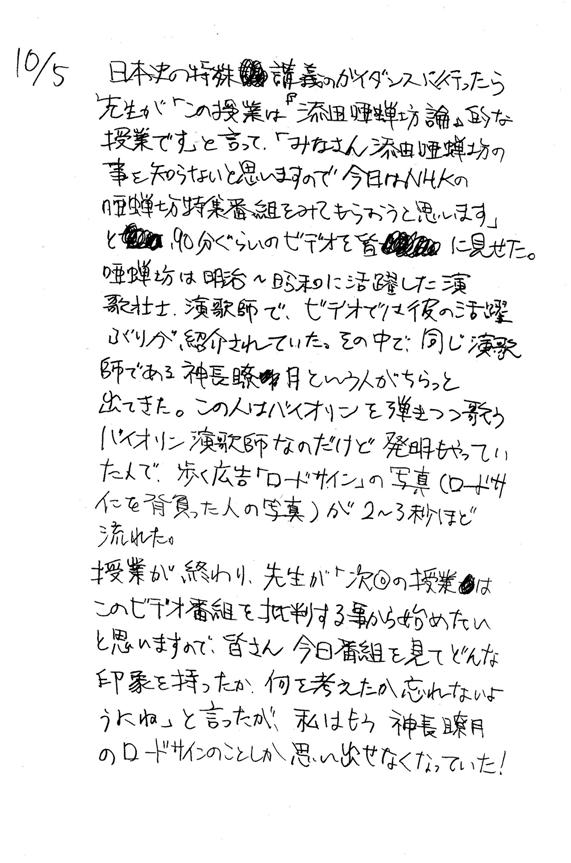 10/5
日本史の特殊講義のガイダンスに行ったら
先生が「この授業は『添田唖蝉坊論』的な
授業です」と言って、「みなさん添田唖蝉坊の
事を知らないと思いますので今日はNHKの
唖蝉坊特集番組をみてもらおうと思います」
と、90分ぐらいのビデオを皆に見せた。
唖蝉坊は明治～昭和に活躍した演
歌壮士、演歌師で、ビデオでは彼の活躍
ぶりが紹介されていた。その中で、同じ演歌
師である神長瞭月という人がちらっと
出てきた。この人はバイオリンを弾きつつ歌う
バイオリン演歌師なのだけど発明もやってい
た人で、歩く広告「ロードサイン」の写真(ロードサ
インを背負った人の写真)が2～3秒ほど
流れた。
授業が終わり、先生が「次の授業は
このビデオ番組を批判する事から始めたい
と思いますので、皆さん今日番組を見てどんな
印象を持ったか、何を考えたか忘れないよ
うにね」と言ったが、私はもう神長瞭月
のロードサインのことしか思い出せなくなっていた!